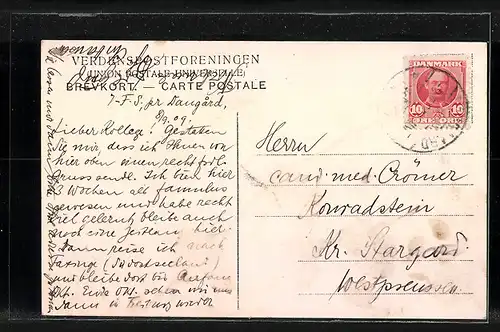 VERDENSPOSTFORENINGEN
(UNION POSTALE UNIVERSELLE)
BREVKORT. — CARTE POSTALE
DANMARK
10 10
ØRE ØRE
9/9.09.
Lieber Kollege! Gestatten
Sie mir dass ich Ihnen von
hier oben einen recht frdl.
Gruss sende. Ich bin hier
3 Wochen als famulus
gewesen und habe recht
viel gelernt, bleibe auch
noch eine hier.
Dann reise ich nach
und bleibe dort bis Anfang
Okt. Ende Okt. sehen wir uns
dann in Freiburg wieder
Herrn
cand. med. Crömer
Konradstein
Kr. Stargard.
Westpreussen.